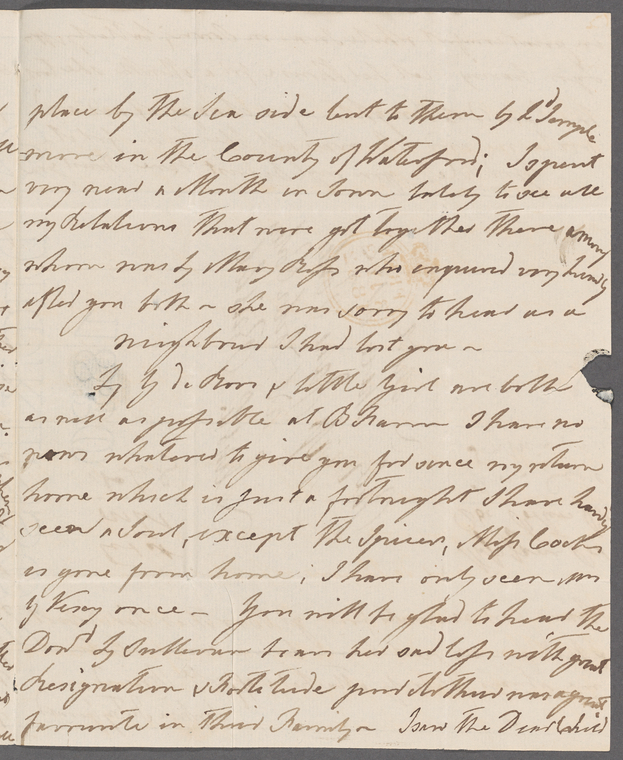 place by the Sea side lent to them by Ld Temple
more in the County of Waterford; I spent
very near a Month in Town lately to see all
my Relations that were got together there among
whom was Ly Mary Ross who enquired very kindly
after you both ~ she was sorry to hear as a
neighbour I had lost you ~
Ly de Roos & little Girl are both
as well as possible at I have no
news whatever to give you for since my return
home which is just a fortnight I have hardly
seen a Soul, except the Spicers, Miss Cocks
is gone from home; I have only seen
once ~ You will be glad to hear the
Dowr Ly Sullivan bears her sad loss with great
Resignation & Fortitude was a great
favourite in their Family ~ I saw the Dear Child